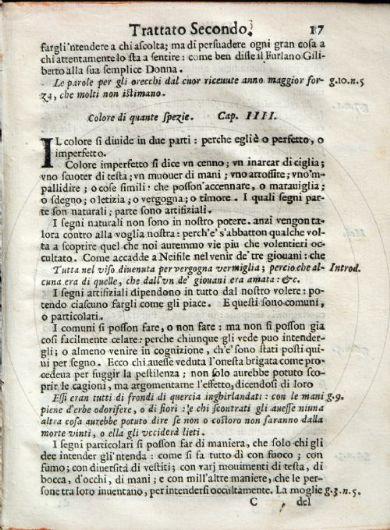 Trattato Secondo. 17
fargli'ntendere a chi ascolta; ma di persuadere ogni gran cosa a
chi attentamente lo sta a sentire: come ben disse il Furlano Gili-
berto alla sua semplice Donna.
Le parole per gli orecchi dal cuor ricevute anno maggior for- g.10.n.5
za, che molti non istimano.
Colore di quante spezie. Cap. IIII.
IL colore si divide in due parti: perche egli è o perfetto, o
imperfetto.
Colore imperfetto si dice vn cenno; vn inarcar di ciglia;
vno scuoter di testa; vn muouer di mani; vno arrossire; vno'm-
pallidire; o cose simili: che posson'accennare, o marauiglia; o
o sdegno; o letizia; o vergogna; o timore. I quali segni par-
te son naturali; parte sono artifiziali.
I segni naturali non sono in nostro potere. anzi vengon ta-
lora contro alla voglia nostra: perch'e's'abbatton qualche vol-
ta a scoprire quel che noi autemmo vie piu che volentieri oc-
cultato. Come accadde a Neifile nel venir de' tre giouani: che
Tutta nel viso diuenuta per vergogna vermiglia; percio che al- Introd.
cuna era di quelle, che dall'vn de' giouani era amata: &c.
I segni artifiziali dipendono in tutto dal nostro volere: po-
tendo ciascuno fargli come gli piace. E questi sono comuni,
o particolati.
I comuni si posson fare, o non fare: ma non si posson gia
cosi facilmente celare: perche chiunque gli vede puo intender-
gli; o almeno venire in cognizione, ch'e' sono stati posti qui-
ui per segno. Ecco chi auesse veduta l'onesta brigata come pro-
cedeua per fuggir la pestilenza; non solo aurebbe potuto sco-
prir le cagioni, ma argomentarne l'effetto, dicendosi di loro
Essi eran tutti di frondi di quercia inghirlandati: con le mani g.9.
piene d'erbe odorifere, o di fiori: e chi scontrati gli auesse niuna
altra cosa aurebbe potuto dire se non o costoro non faranno dalla
morte vinti, o ella gli vcciderà lieti.
I segni particolari si posson far di maniera, che solo chi gli
dee intender gli'ntenda: come si fa tutto dì con fuoco; con
fumo; con diuersità di vestiti; con varj mouimenti di testa, di
bocca, d'occhi, di mani; e con mill'altre maniere, che le per-
sone tra loro inuentano, per intendersi occultamente. La moglie g.3.n.5.
C del